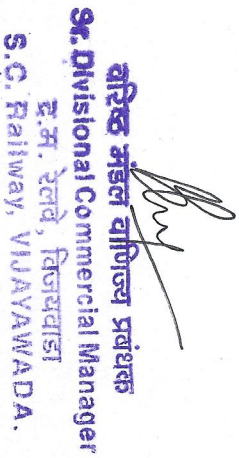 वरिष्ठ मंडल वाणिज्य प्रबंधक
Sr. Divisional Commercial Manager
द.म. रेलवे, विजयवाडा
S.C. Railway, VIJAYAWADA.